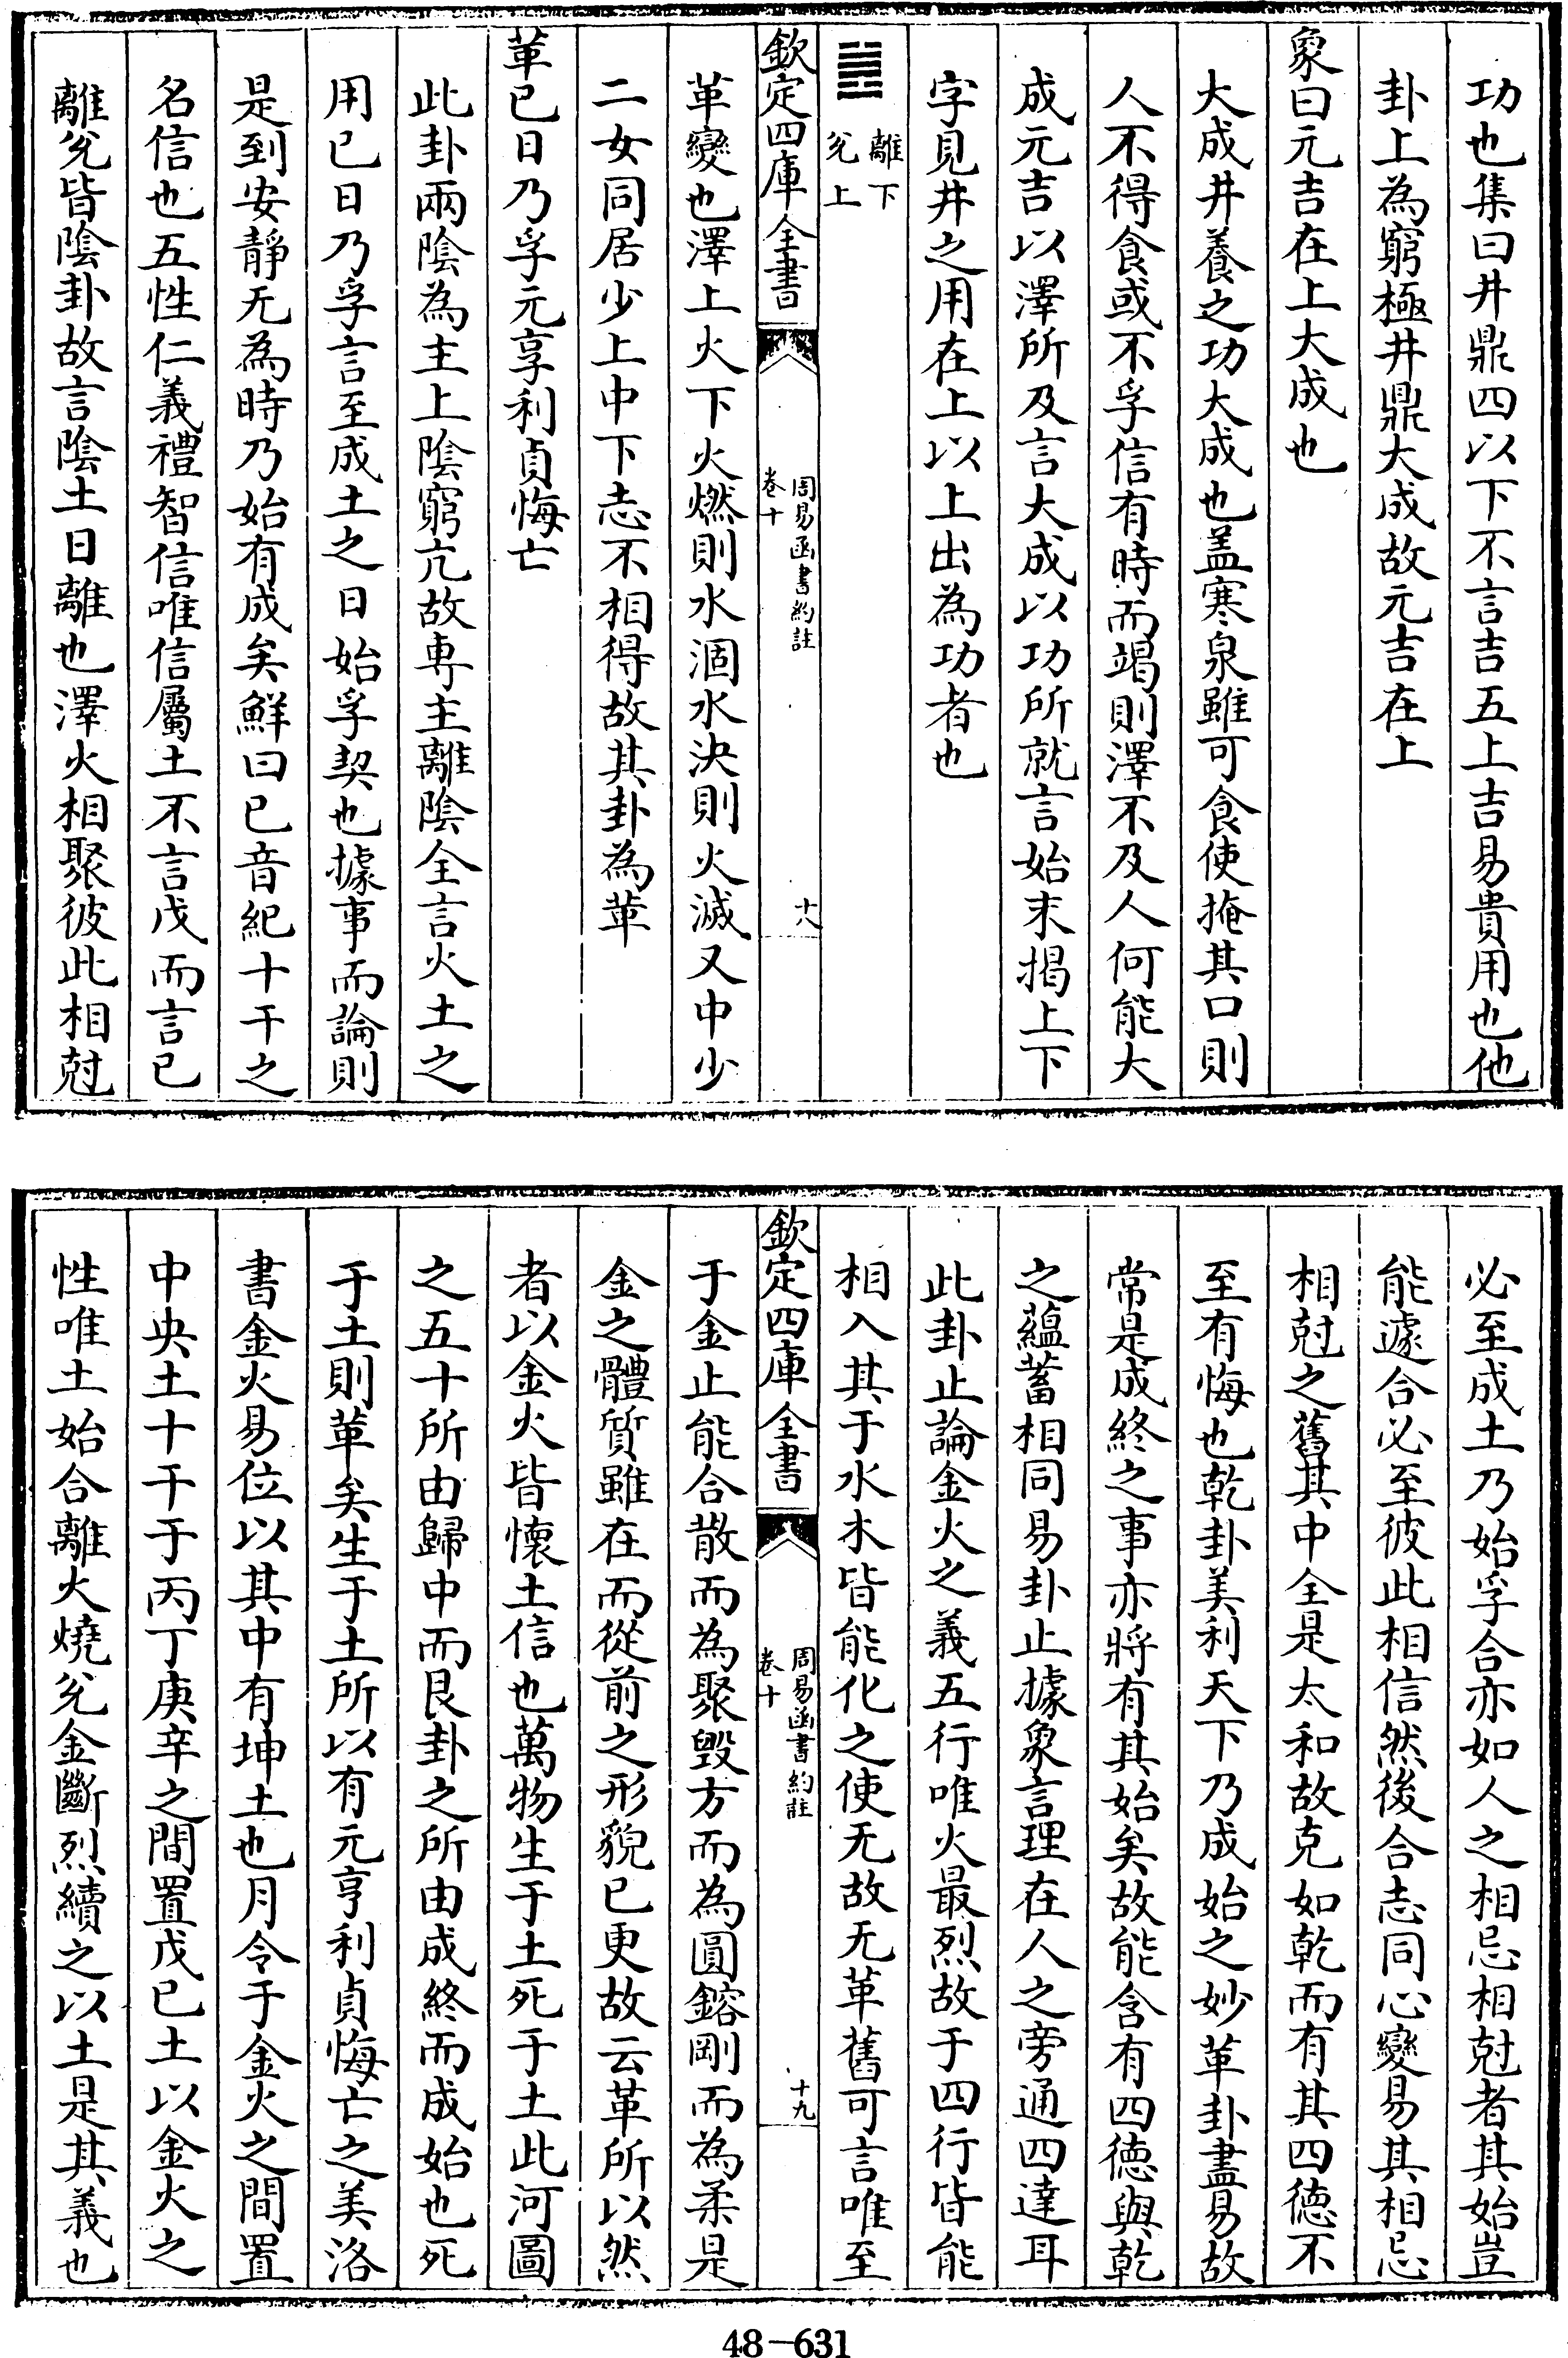 功也集曰井鼎四以下不言吉五上吉易貴用也他
卦上為窮極井鼎大成故元吉在上
象曰元吉在上大成也
大成井養之功大成也盖寒泉雖可食使掩其口則
人不得食或不孚信有時而竭則澤不及人何能大
成元吉以澤所及言大成以功所就言始末揭上下
字見井之用在上以上出為功者也
䷰離下
兊上
欽定四庫全書
周易函書約註
卷十
十八
革變也澤上火下火燃則水涸水決則火滅又中少
二女同居少上中下志不相得故其卦為革
革已日乃孚元享利貞悔亡
此卦兩陰為主上陰窮亢故專主離陰全言火土之
用已日乃孚言至成土之日始孚契也據事而論則
是到安靜无為時乃始有成矣鮮曰已音紀十干之
名信也五性仁義禮智信唯信屬土不言戊而言已
離兊皆陰卦故言陰土日離也澤火相聚彼此相尅
必至成土乃始孚合亦如人之相忌相尅者其始豈
能遽合必至彼此相信然後合志同心變易其相忌
相尅之舊其中全是太和故克如乾而有其四德不
至有悔也乾卦美利天下乃成始之妙革卦盡易故
常是成終之事亦將有其始矣故能含有四德與乾
之蘊蓄相同易卦止據象言理在人之旁通四達耳
此卦止論金火之義五行唯火最烈故于四行皆能
相入其于水木皆能化之使无故无革舊可言唯至
欽定四庫全書
周易函書約註
卷十
十九
于金止能合散而為聚毀方而為圓鎔剛而為柔是
金之體質雖在而從前之形貌已更故云革所以然
者以金火皆懷土信也萬物生于土死于土此河圖
之五十所由歸中而艮卦之所由成終而成始也死
于土則革矣生于土所以有元亨利貞悔亡之美洛
書金火易位以其中有坤土也月令于金火之間置
中央土十干于丙丁庚辛之間置戊已土以金火之
性唯土始合離火燒兊金斷烈續之以土是其義也
48-631